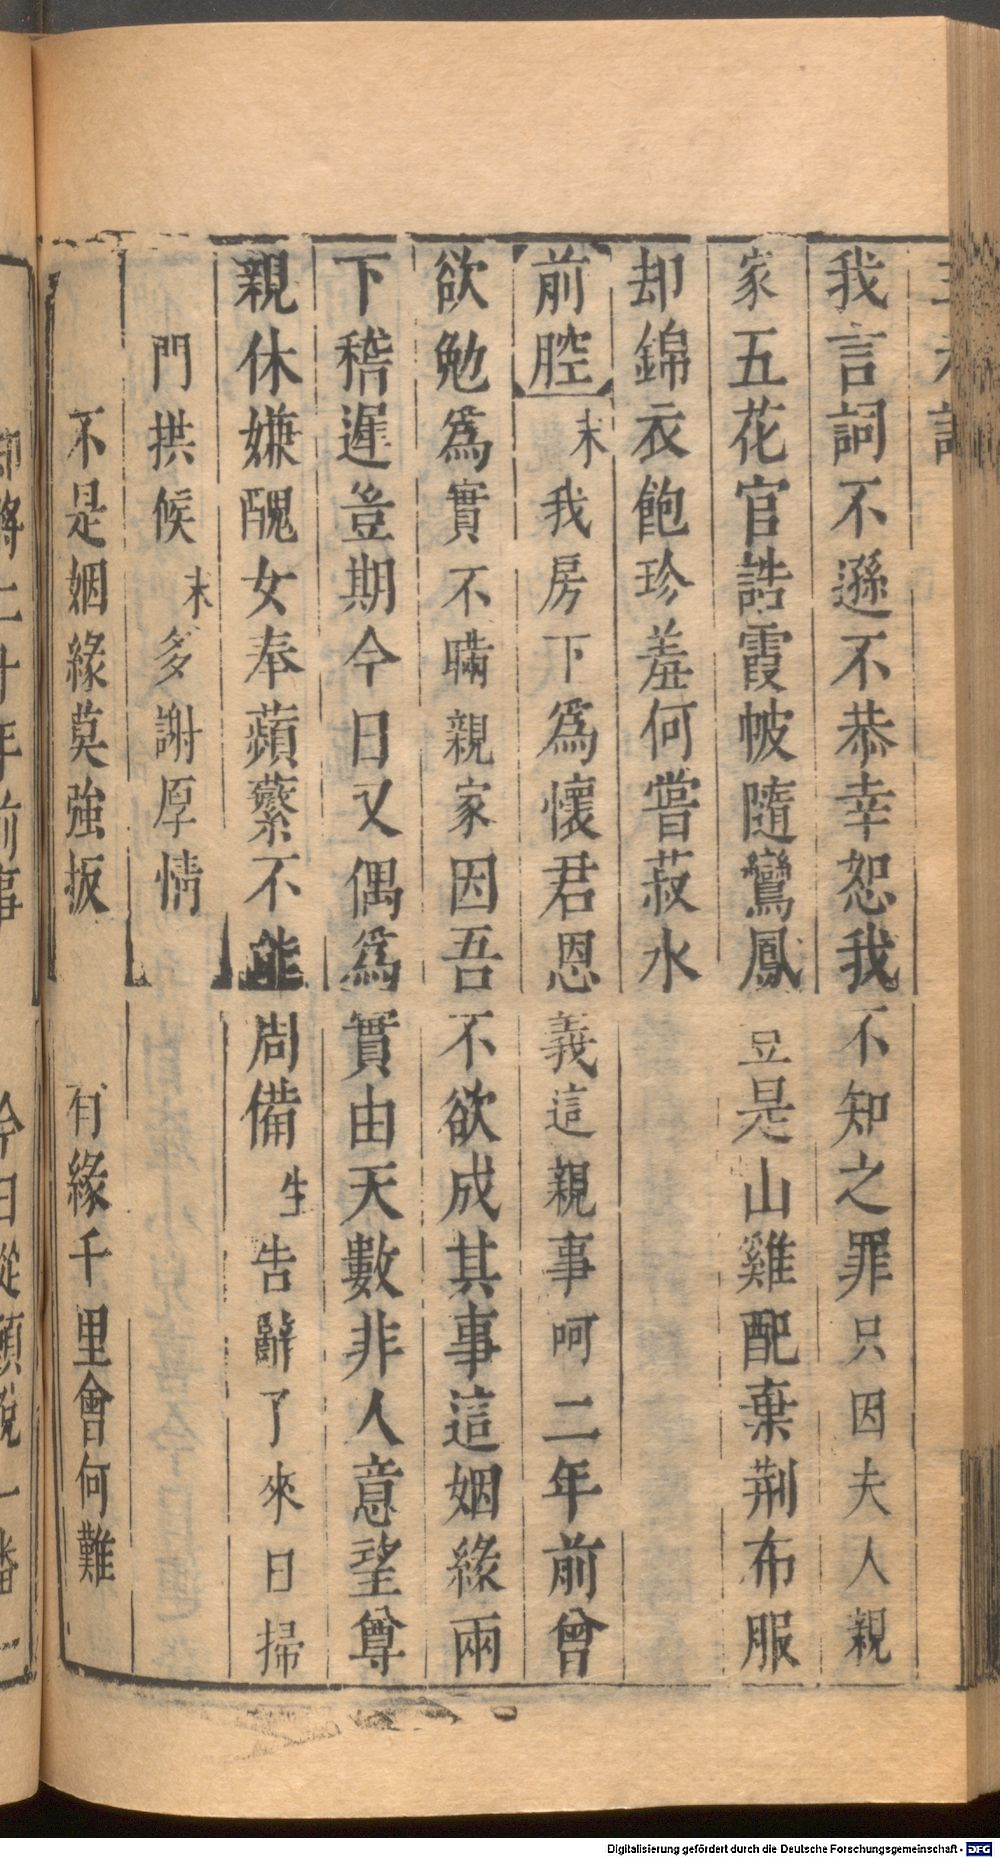 我言詞不遜不恭幸恕我不知之罪只因夫人親
家五花官誥霞帔隨鸞鳳豈是山雞配棄荆布服
却錦衣飽珍羞何嘗菽水
【前腔】末我房下為懷君恩義這親事呵二年前曾
欲勉為實不瞞親家因吾不欲成其事這姻緣兩
下稽遲豈期今日又偶為實由天數非人意望尊
親休嫌醜女奉蘋蘩不能周備生告辭了來日掃
門拱候末多謝厚情
不是姻緣莫強扳　有緣千里會何難
Digitalisierung gefördert durch die Deutsche Forschungsgemeinschaft - DFG